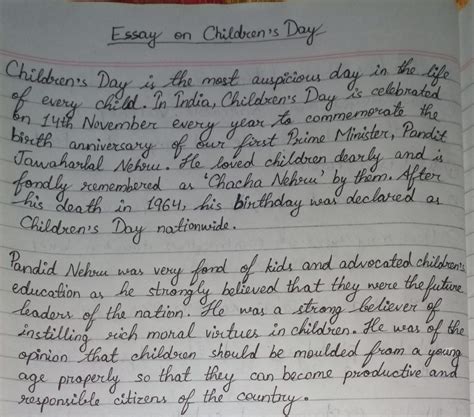 Essay on Children's Day
Children's Day is the most auspicious day in the life
of every child. In India, Children's Day is celebrated
on 14th November every year to commemorate the
birth anniversary of our first Prime Minister, Pandit
Jawaharlal Nehru. He loved children dearly and is
fondly remembered as 'Chacha Nehru' by them. After
his death in 1964, his birthday was declared as
Children's Day nationwide.
Pandid Nehru was very fond of kids and advocated children's
education as he strongly believed that they were the future
leaders of the nation. He was a strong believer of
instilling rich moral virtues in children. He was of the
opinion that children should be moulded from a young
age properly so that they can become productive and
responsible citizens of the country.